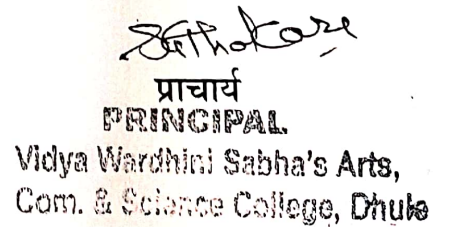 प्राचार्य
PRINCIPAL
Vidya Wardhini Sabha's Arts,
Com. & Science College, Dhule